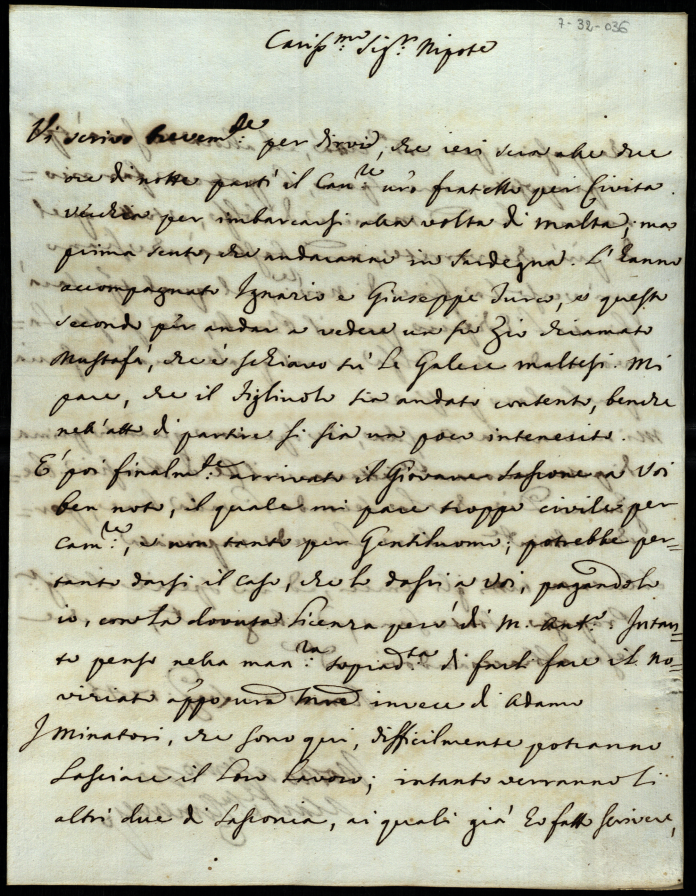 7-32-036
Cariss.mo Sig.r Nipote
Vi scrivo brevem.te per dirvi, che ieri sera alle due
ore di notte partì il Cav.re v̄ro fratello per Civita
vecchia per imbarcarsi alla volta di Malta; ma
prima sento, che andaranno in Sardegna. L'hanno
accompagnato Ignazio e Giuseppe Turco, e questo
secondo per andar a vedere un suo Zio chiamato
Mustafà, che è schiavo sù le Galere maltesi. Mi
pare, che il figlivolo sia andato contento, benche
nell'atto di partire si sia un poco intenerito.
E' poi finalm.te arrivato il Giovane Sassone a voi
ben noto, il quale mi pare troppo civile per
Cam.re, e non tanto per Gentiluomo; potrebbe per=
tanto darsi il caso, che lo dassi a voi, pagandolo
io, con la dovuta licenza però di M. Ant.o. Intan=
to penso nella man.ra soprad.ta di farli fare il no=
viziato app̄o v̄ra Mad̄re invece di Adamo
I Minatori, che sono qui, difficilmente potranno
lasciare il loro lavoro; intanto verranno li
altri due di Sassonia, ai quali già ho fatto scrivere,